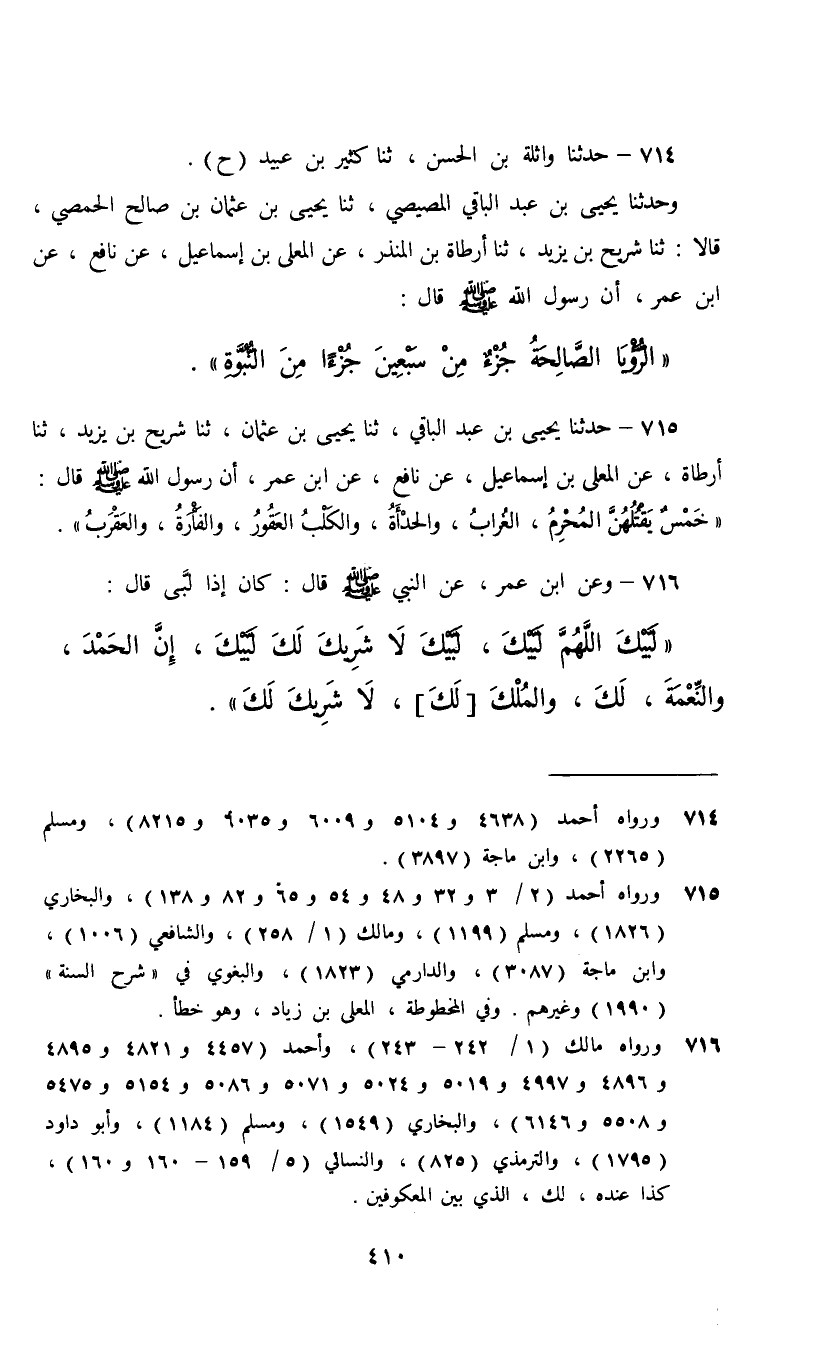 ٧١٤ – حدثنا واثلة بن الحسن ، ثنا كثير بن عبيد (ح) .
وحدثنا يحيى بن عبد الباقي المصيصي ، ثنا يحيى بن عثمان بن صالح الحمصي ،
قالا : ثنا شريح بن يزيد ، ثنا أرطاة بن المنذر ، عن المعلى بن إسماعيل ، عن نافع ، عن
ابن عمر ، أن رسول الله ﷺ قال :
« الرُّؤْيَا الصَّالِحَةُ جُزْءٌ مِنْ سَبْعِينَ جُزْءًا مِنَ النُّبُوَّةِ» .
٧١٥ – حدثنا يحيى بن عبد الباقي ، ثنا يحيى بن عثمان ، ثنا شريح بن يزيد ، ثنا
أرطاة ، عن المعلى بن إسماعيل ، عن نافع ، عن ابن عمر ، أن رسول الله ﷺ قال :
« خَمْسٌ يَقْتُلُهُنَّ المُحْرِمُ ، الغُرابُ ، والحدْأَةُ ، والكَلْبُ العَقُورُ ، والفَأْرَةُ ، والعَقْرَبُ» .
٧١٦ – وعن ابن عمر ، عن النبي ﷺ قال : كان إذا لَبَّى قال :
« لَبَّيْكَ اللَّهُمَّ لَبَّيْكَ ، لَبَّيْكَ لَا شَرِيكَ لَكَ لَبَّيْكَ ، إِنَّ الحَمْدَ ،
والنِّعْمَةَ ، لَكَ ، والمُلْكَ [لَكَ] ، لَا شَرِيكَ لَكَ» .
٧١٤ ورواه أحمد (٤٦٣٨ و ٥١٠٤ و ٦٠٠٩ و ٩٠٣٥ و ٨٢١٥) ، ومسلم
(٢٢٦٥) ، وابن ماجة (٣٨٩٧) .
٧١٥ ورواه أحمد (٢ / ٣ و ٣٢ و ٤٨ و ٥٤ و ٦٥ و ٨٢ و ١٣٨) ، والبخاري
(١٨٢٦) ، ومسلم (١١٩٩) ، ومالك (١ / ٢٥٨) ، والشافعي (١٠٠٦) ،
وابن ماجة (٣٠٨٧) ، والدارمي (١٨٢٣) ، والبغوي في « شرح السنة »
(١٩٩٠) وغيرهم . وفي المخطوطة ، المعلى بن زياد ، وهو خطأ .
٧١٦ ورواه مالك (١ / ٢٤٢ – ٢٤٣) ، وأحمد (٤٤٥٧ و ٤٨٢١ و ٤٨٩٥
و ٤٨٩٦ و ٤٩٩٧ و ٥٠١٩ و ٥٠٢٤ و ٥٠٧١ و ٥٠٨٦ و ٥١٥٤ و ٥٤٧٥
و ٥٥٠٨ و ٦١٤٦) ، والبخاري (١٥٤٩) ، ومسلم (١١٨٤) ، وأبو داود
(١٧٩٥) ، والترمذي (٨٢٥) ، والنسائي (٥ / ١٥٩ – ١٦٠ و ١٦٠) ،
كذا عنده ، لك ، الذي بين المعكوفين .
٤١٠